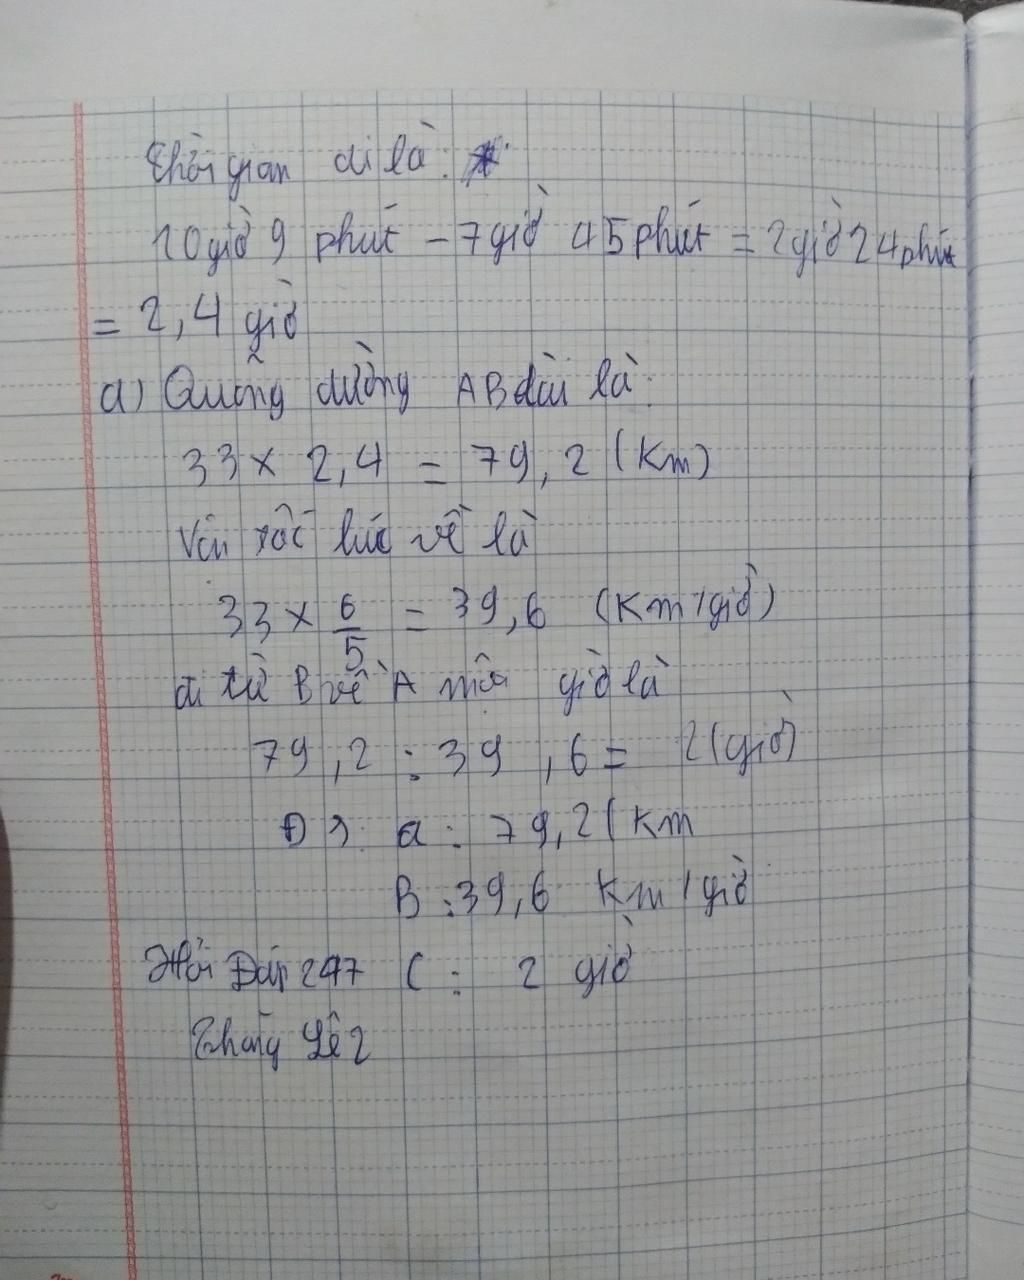 thời gian đi là:
10 giờ 9 phút - 7 giờ 45 phút = 2 giờ 24 phút
= 2,4 giờ
a) Quãng đường AB dài là:
33 x 2,4 = 79,2 (Km)
Vận tốc lúc về là
33 x 6/5 = 39,6 (Km/giờ)
đi từ B về A mất giờ là
79,2 : 39,6 = 2 (giờ)
a: 79,2 (Km
B: 39,6 Km/giờ
Hỏi Đáp 247 C: 2 giờ